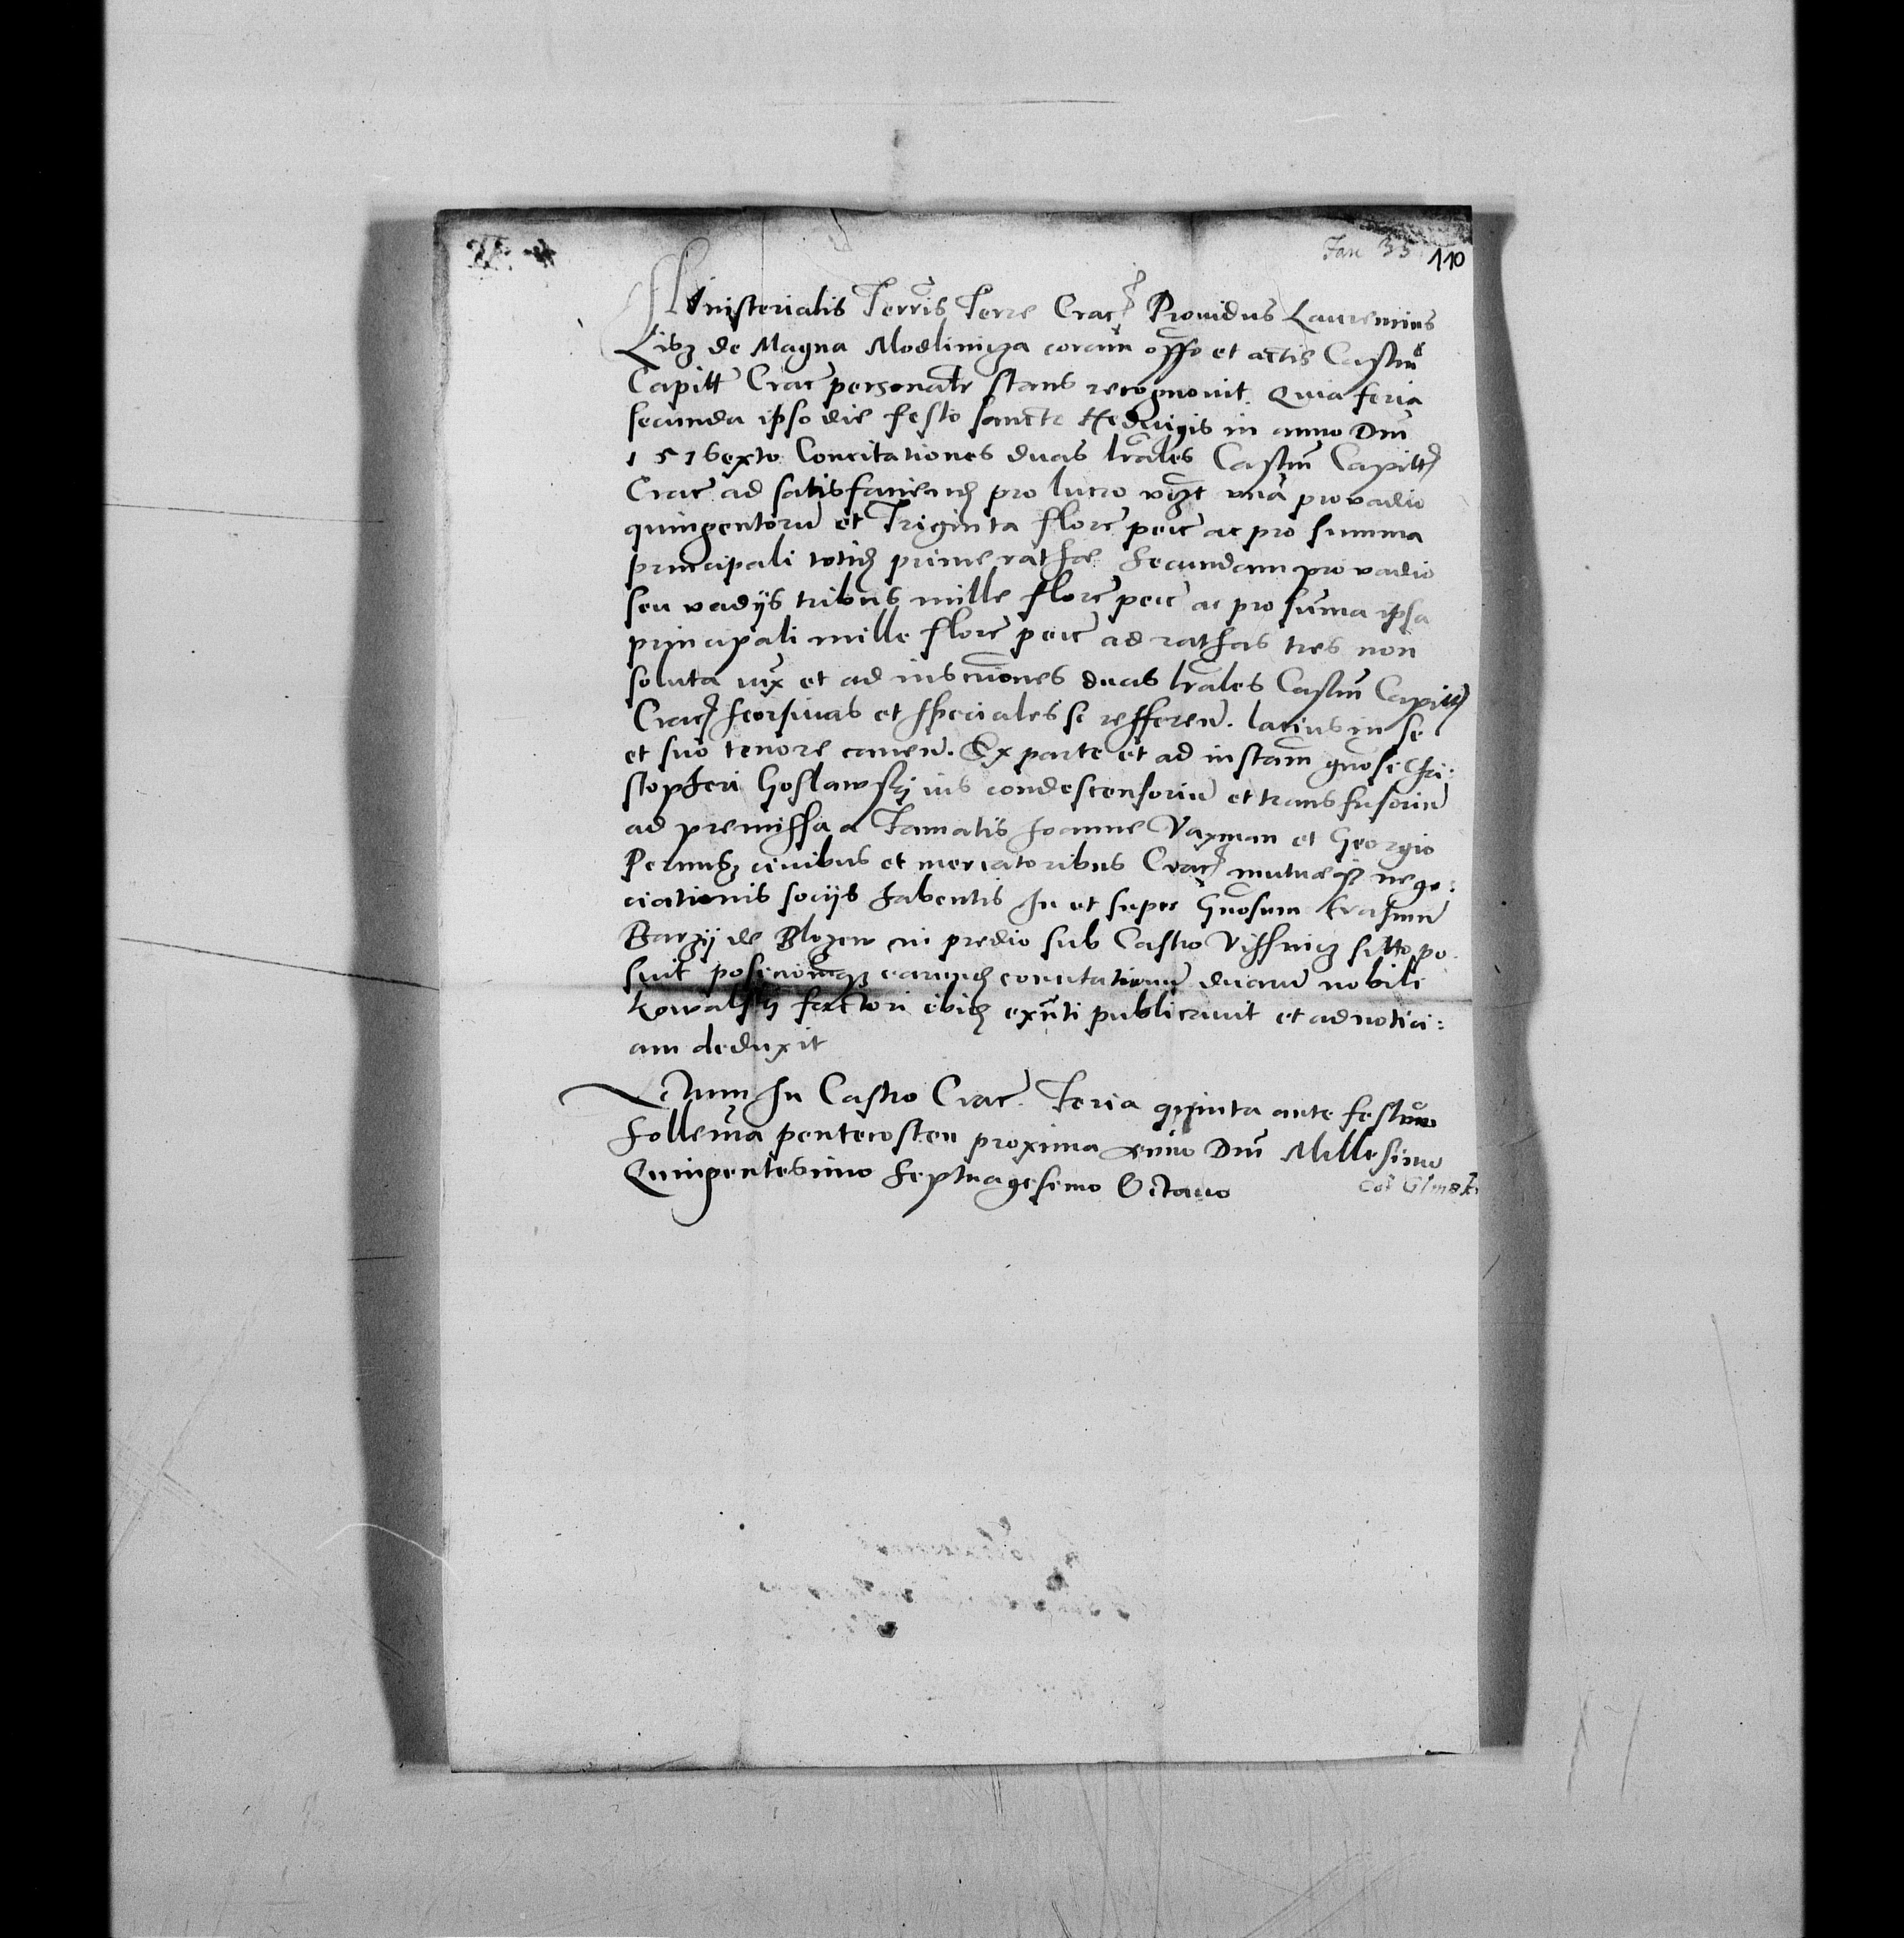 Jan 33 110
Ministerialis Terris Terre Crac Prouidus Laurentius
Lisz de Magna Modlnicza coram offo et actis Castrn
Capitt Crac personalr stans recognouit. Quia feria
secunda ipso die festo sancte Heduigis in anno Dni
1576exto Concitationes duas lrales Castrn Capitt
Crac ad satisfaciend pro lucro vzt vna pro vadio
quingentoru et Triginta flore pecc ac pro summa
principali totid prime rathae Secundam pro vadio
seu vadijs tribus mille flore pecc ac pro suma ipsa
principali mille flore pecc ad rathas tres non
soluta iux et ad inscriones duas lrales Castrn Capitt
Crac seorsiuas et speciales se refferen. latius in se
et suo tenore canen. Ex parte et ad instam gnosi Chri:
stopheri Goslawskj ius condescensoriu et transfusoriu
ad premissa a Famatis Joanne Vaxman et Georgio
Pernus, ciuibus et mercatoribus Crac mutuaeq nego:
ciationis socijs habentis In et super Gnosum Erasmu
Barzij de Blozew in predio sub Castro Vissnicz sitto po
suit posicionemq earund concitationu duaru nobili
Kowalskij factori ibid exnti publicauit et ad notici:
am deduxit
Actum In Castro Crac. Feria quinta ante festum
Sollenna pentecosten proxima Anno Dni Millesimo
Quingentesimo Septuagesimo Octauo